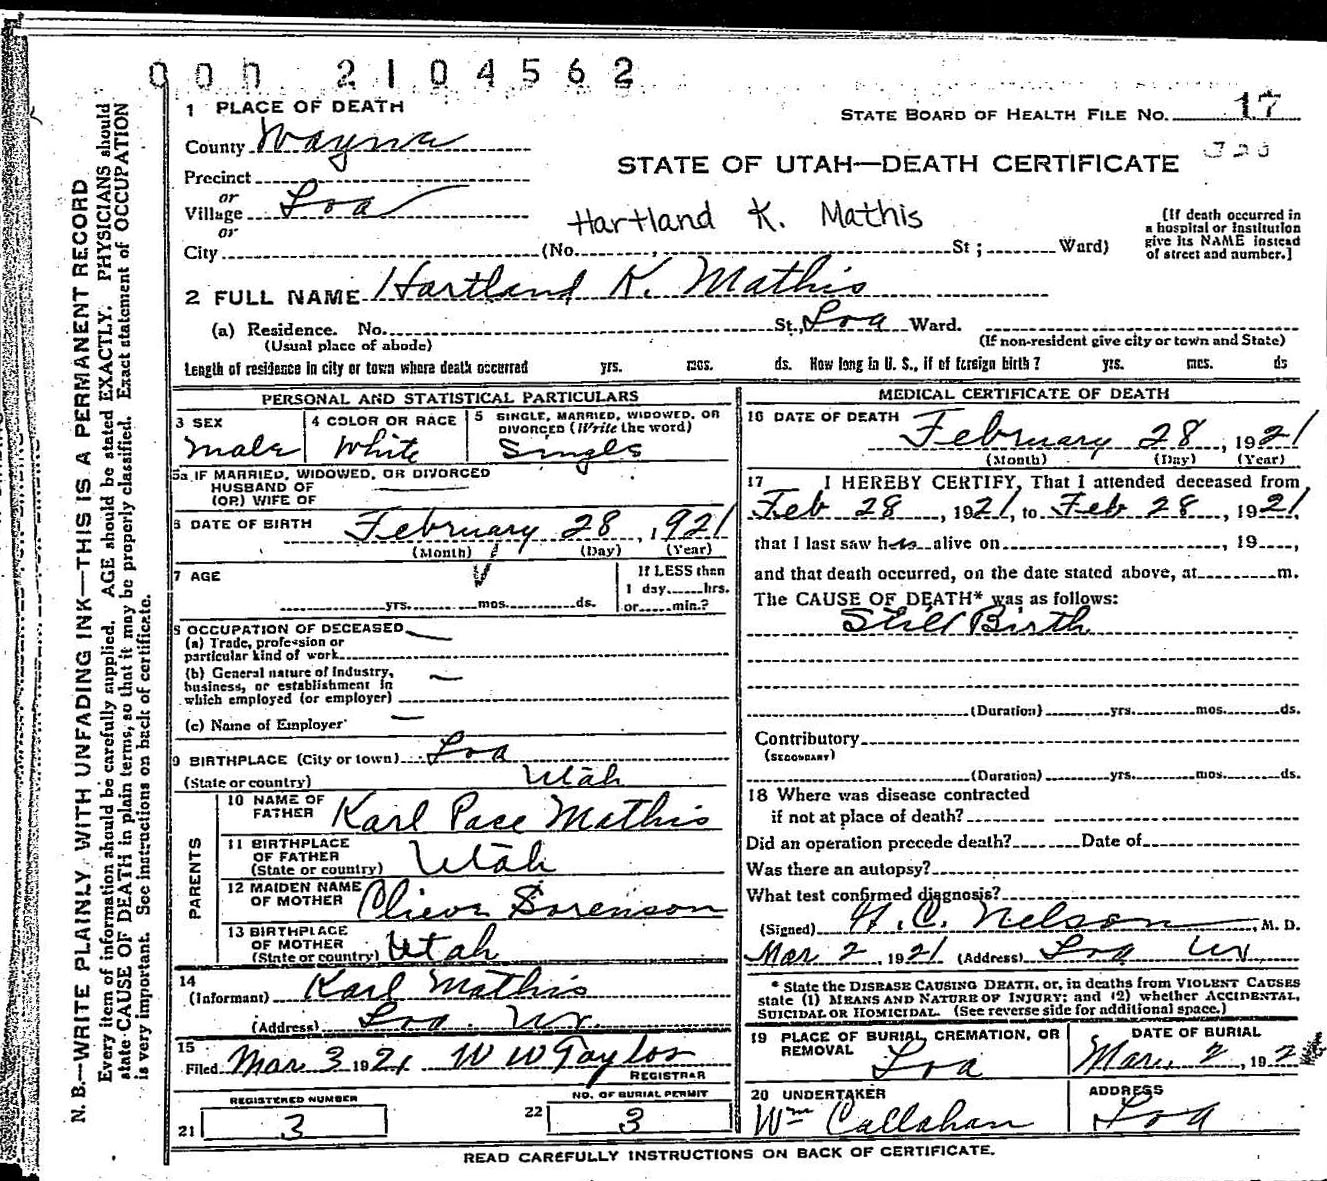 000 2104562
1 PLACE OF DEATH
STATE BOARD OF HEALTH FILE NO. 17
County Wayne
STATE OF UTAH—DEATH CERTIFICATE
Precinct
or
Village Loa
or
Hartland K. Mathis
City (No. St; Ward)
[If death occurred in
a hospital or institution
give its NAME instead
of street and number.]
2 FULL NAME Hartland K. Mathis
(a) Residence. No. St., Loa Ward.
(Usual place of abode) (If non-resident give city or town and State)
Length of residence in city or town where death occurred yrs. mos. ds. How long in U. S., if of foreign birth? yrs. mos. ds
PERSONAL AND STATISTICAL PARTICULARS
3 SEX Male
4 COLOR OR RACE White
5 SINGLE, MARRIED, WIDOWED, OR
DIVORCED (Write the word)
Single
5a IF MARRIED, WIDOWED, OR DIVORCED
HUSBAND OF
(OR) WIFE OF
6 DATE OF BIRTH February 28, 1921
(Month) (Day) (Year)
7 AGE
yrs. mos. ds.
If LESS then
1 day hrs.
or min.?
8 OCCUPATION OF DECEASED
(a) Trade, profession or
particular kind of work
(b) General nature of industry,
business, or establishment in
which employed (or employer)
(c) Name of Employer
9 BIRTHPLACE (City or town) Loa
(State or country) Utah
PARENTS
10 NAME OF
FATHER Karl Pace Mathis
11 BIRTHPLACE
OF FATHER
(State or country) Utah
12 MAIDEN NAME
OF MOTHER Sorenson
13 BIRTHPLACE
OF MOTHER
(State or country) Utah
14
(Informant) Karl Mathis
(Address) Loa. Ut.
15
Filed Mar 3 1921 W W Taylor
REGISTRAR
REGISTERED NUMBER
21 3
NO. OF BURIAL PERMIT
22 3
MEDICAL CERTIFICATE OF DEATH
16 DATE OF DEATH February 28, 1921
(Month) (Day) (Year)
17 I HEREBY CERTIFY, That I attended deceased from
Feb 28, 1921, to Feb 28, 1921,
that I last saw h alive on , 19 ,
and that death occurred, on the date stated above, at m.
The CAUSE OF DEATH* was as follows:
Still Birth
(Duration) yrs. mos. ds.
Contributory
(SECONDARY)
(Duration) yrs. mos. ds.
18 Where was disease contracted
if not at place of death?
Did an operation precede death? Date of
Was there an autopsy?
What test confirmed diagnosis?
(Signed) Nelson, M. D.
Mar 2, 1921 (Address) Loa Ut
* State the DISEASE CAUSING DEATH, or, in deaths from VIOLENT CAUSES
state (1) MEANS AND NATURE OF INJURY; and (2) whether ACCIDENTAL,
SUICIDAL OR HOMICIDAL. (See reverse side for additional space.)
19 PLACE OF BURIAL, CREMATION, OR
REMOVAL Loa
DATE OF BURIAL
Mar. 2, 192
20 UNDERTAKER
Wm Callahan
ADDRESS
Loa
READ CAREFULLY INSTRUCTIONS ON BACK OF CERTIFICATE.
N. B.—WRITE PLAINLY, WITH UNFADING INK—THIS IS A PERMANENT RECORD
Every item of information should be carefully supplied. AGE should be stated EXACTLY. PHYSICIANS should
state CAUSE OF DEATH in plain terms, so that it may be properly classified. Exact statement of OCCUPATION
is very important. See instructions on back of certificate.